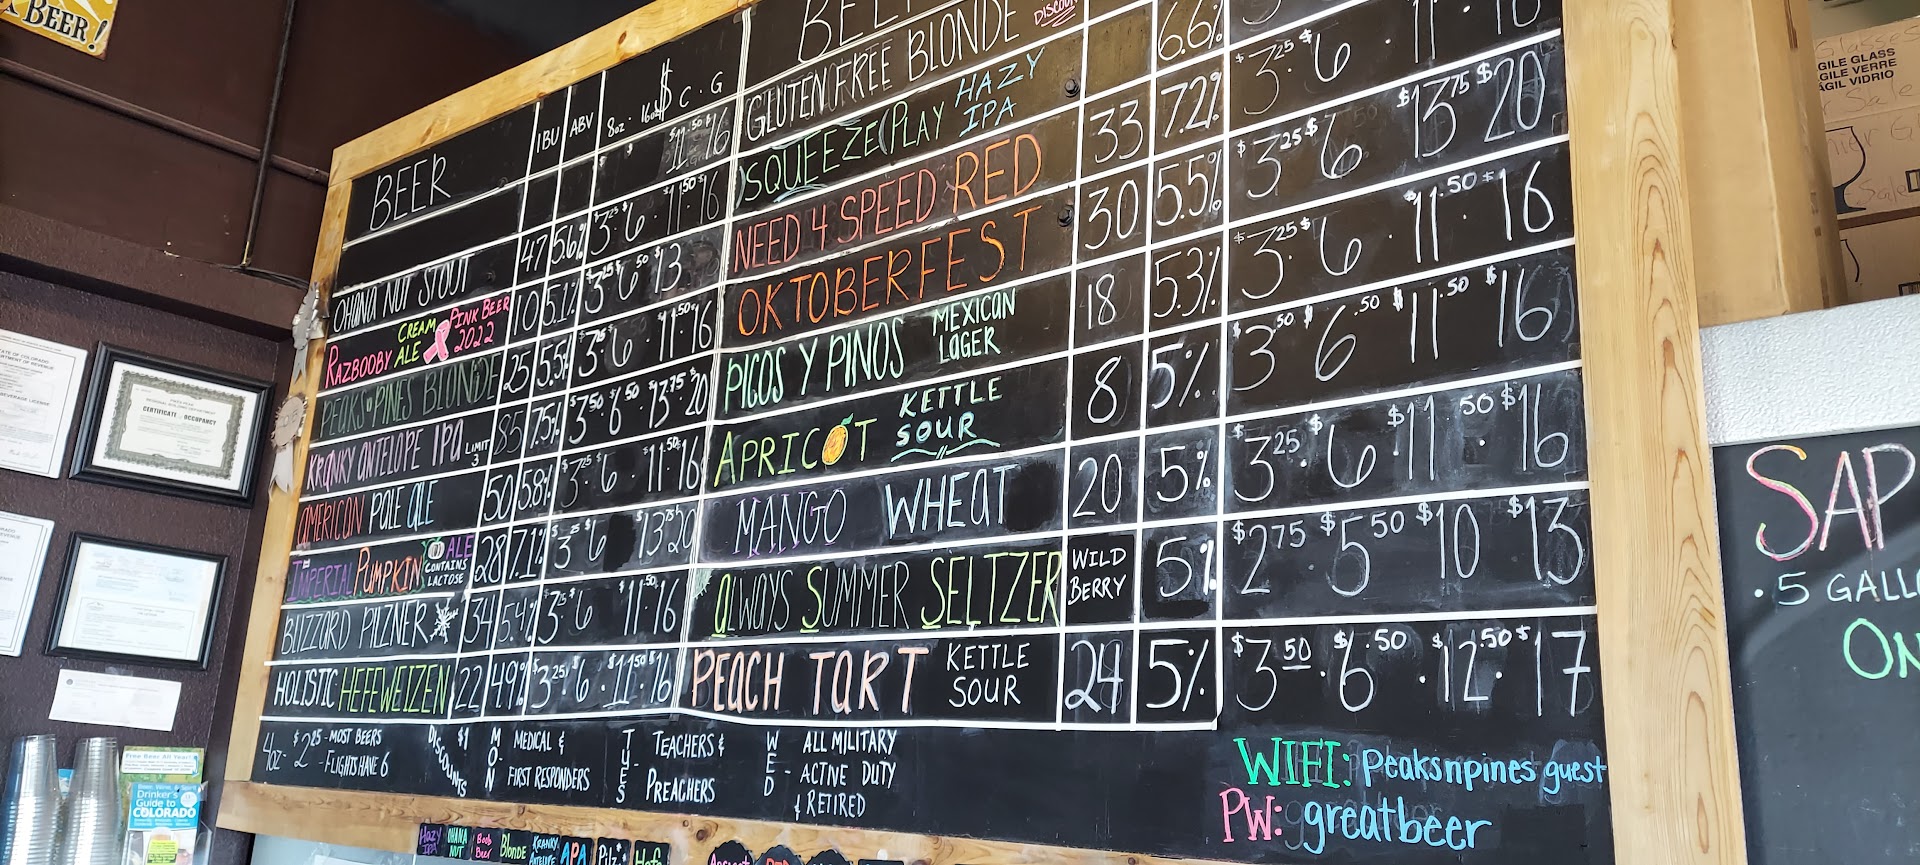 BEER!
BEER IBU ABV 8oz. 16oz $ C. G
$11.50 16
OHANA NUT STOUT 47 5.6% $3.25 6 . 11.50 . 16
RAZBOOBY CREAM ALE PINK BEER 2022 10 5.1% $3.25 $6.50 $13
PEAKS N PINES BLONDE 25 5.5% $3.25 6 . 11.50 16
KRANKY ANTELOPE IPA LIMIT 3 85 7.5% $3.50 $6.50 $13.75 $20
AMERICAN PALE ALE 50 5.8% $3.25 6 . 11.50 16
IMPERIAL PUMPKIN ALE CONTAINS LACTOSE 28 7.1% $3.25 6 13.75 20
BLIZZARD PILZNER 34 5.4% $3.25 6 11.50 16
HOLISTIC HEFEWEIZEN 22 4.9% $3.25 $6 . $11.50 $16
GLUTEN FREE BLONDE
SQUEEZE PLAY HAZY IPA
NEED 4 SPEED RED
OKTOBERFEST
PICOS Y PINOS MEXICAN LAGER
APRICOT KETTLE SOUR
MANGO WHEAT
ALWAYS SUMMER SELTZER WILD BERRY
PEACH TART KETTLE SOUR
DISCOUN
6.6% $3.25 6 . 11 . 16
33 7.2% $3.25 $6 $13.75 $20
30 5.5% $3.25 6 $11.50 $16
18 5.3% $3.25 6 . 11.50 $16
8 5% $3.50 6.50 $11.50 $16
20 5% $3.25 $6 $11.50 $16
5% $2.75 $5.50 $10 $13
24 5% $3.50 . $6.50 . $12.50 . $17
4oz - $2.25 - MOST BEERS
- FLIGHTS HAVE 6
$1 DISCOUNTS
MON MEDICAL & FIRST RESPONDERS
TUES - TEACHERS & PREACHERS
WED - ALL MILITARY
ACTIVE DUTY
& RETIRED
WIFI: Peaksnpines guest
PW: greatbeer
Hazy IPA
OHANA NUT
Boob Beer
Blonde
KRANKY ANTELOPE
APA
Pilz
Hefe
Apricot
RED
SAP
• 5 GALLO
ON
CERTIFICATE of OCCUPANCY
Free Beer All Year!
Beer, Wine, & Spirit
Drinker's
Guide to
COLORADO
Glasses
AGILE GLASS
AGILE VERRE
AGIL VIDRIO